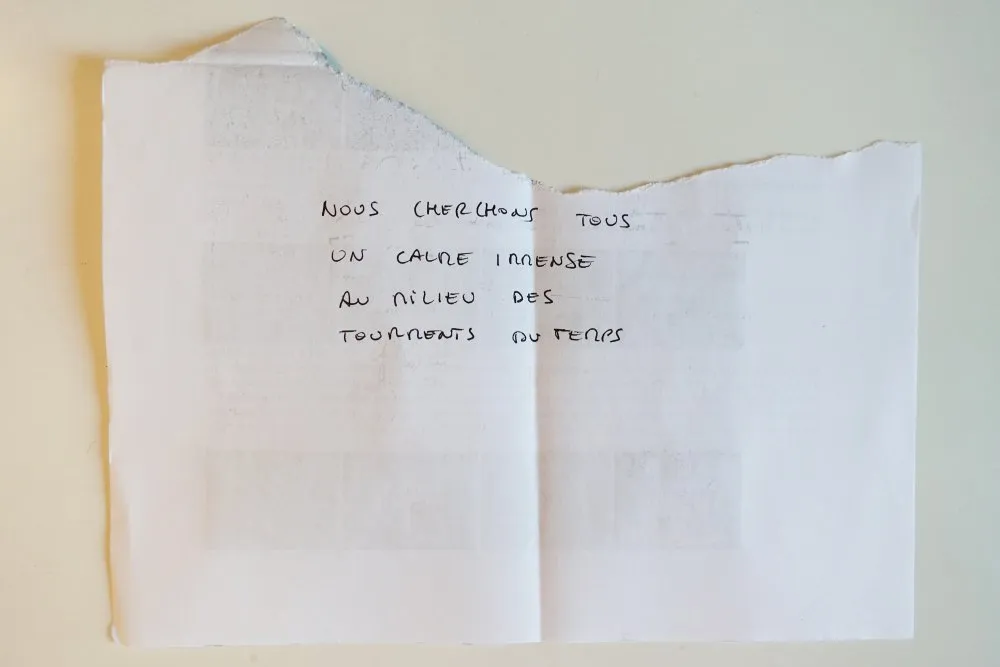 NOUS CHERCHONS TOUS
UN CALME IMMENSE
AU MILIEU DES
TOURMENTS DU TEMPS